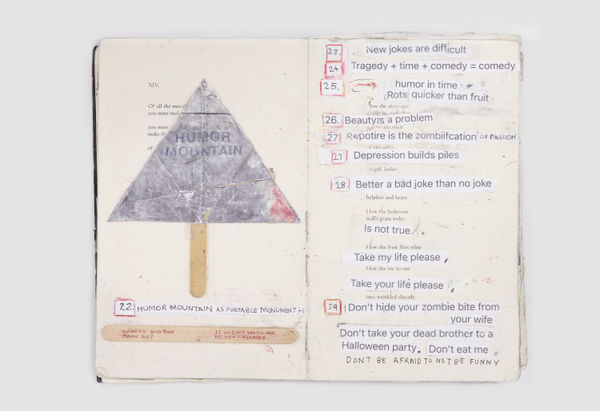 XIV.
Of all the
you must
HUMOR
MOUNTAIN
22. HUMOR MOUNTAIN AS PORTABLE MONUMENT
WHERE DID THE
PAIN GO?
IT WENT WITH ME
TO SEE FRIENDS.
23. New jokes are difficult
24 Tragedy + time + comedy = comedy
25. humor in time
Rots quicker than fruit
26. Beauty is a problem
27 Repotire is the zombiifcation OF PASSION
27 Depression builds piles
28 Better a bad joke than no joke
helpless and heavy
I love the bedroom
Is not true.
I love the fruit flies whip
Take my life please,
Take your life please,
into wrinkled threads
29. Don't hide your zombie bite from
your wife
Don't take your dead brother to a
Halloween party. Don't eat me
DON'T BE AFRAID TO NOT BE FUNNY